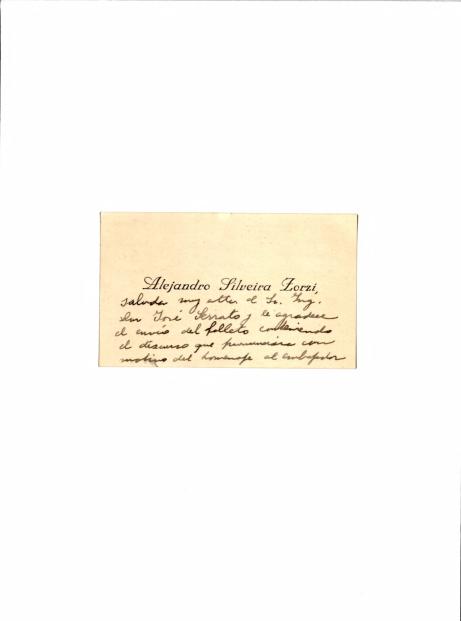 Alejandro Silveira Zorzi,
saluda muy atte. al Sr. Ing.
Don José Serrato y le agradece
el envío del folleto conteniendo
el discurso que pronunciara con
motivo del homenaje al embajador